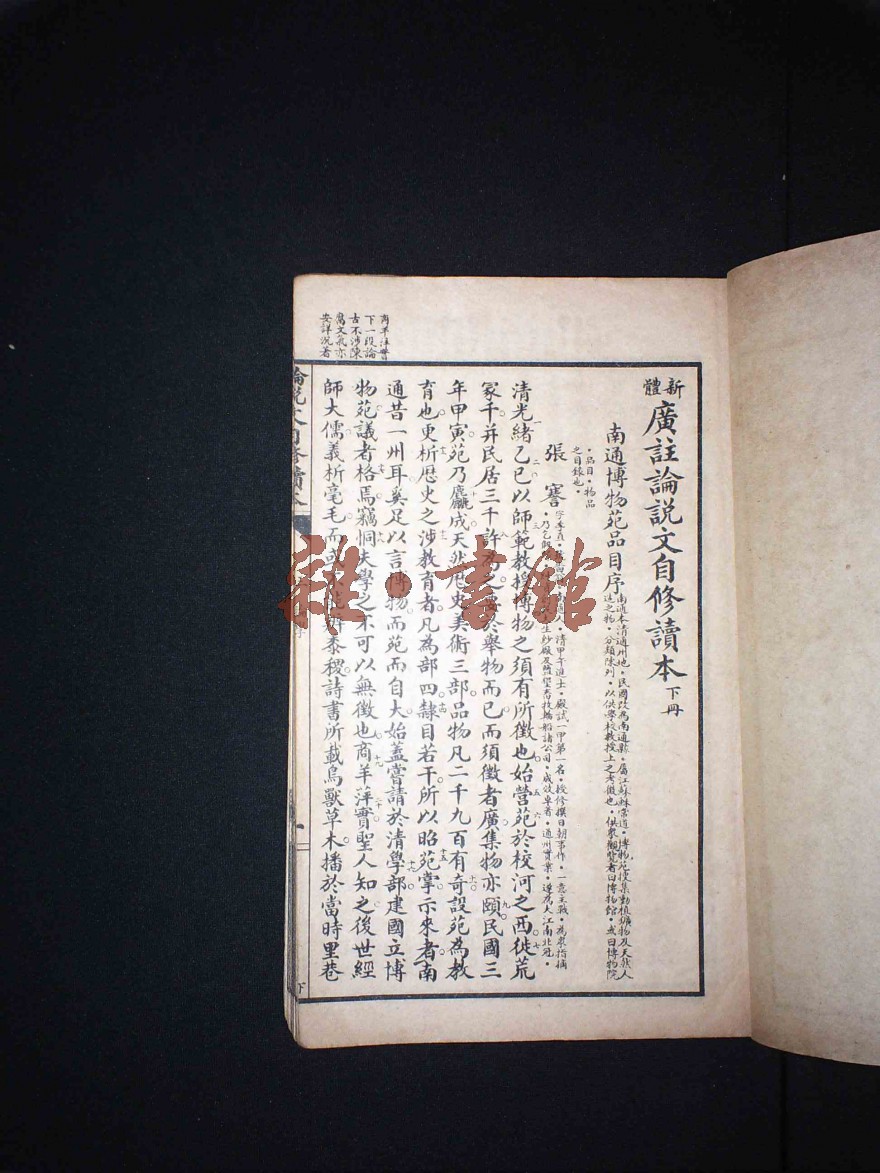 新體
廣註論說文自修讀本下冊
南通博物苑品目序
南通本清通州地。民國改為南通縣。屬江蘇蘇常道。博物苑搜集動植礦物及天然人
之物。分類陳列。以供學校教授上之考徵也。供眾觀覽者曰博物館。或曰博物院
。品目。物品
之目錄也。
張謇
字季直。清甲午進士。殿試一甲第一名。授修撰日朝事作。一意主戰。為眾指摘
。乃乞假 生紗廠及墾牧輪船諸公司。成效卓著。通州實業。遂為大江南北冠。
清光緒乙巳以師範教授博物之須有所徵也始營苑於校河之西徙荒
冢千并民居三千許為之要於舉物而已而須徵者廣集物亦頤民國三
年甲寅苑乃麤成天然歷史美術三部品物凡二千九百有奇設苑為教
育也更析歷史之涉教育者凡為部四隸目若干所以昭苑掌示來者南
通昔一州耳奚足以言博物而苑而自大始蓋嘗請於清學部建國立博
物苑議者格焉竊恫夫學之不可以無徵也商羊萍實聖人知之後世經
師大儒義析毫毛而或 辨黍稷詩書所載鳥獸草木播於當時里巷
商羊注嘗
下一段論
古不涉陳
腐文氣亦
安詳況著
論說文自修讀本
序
一
下
雜·書館